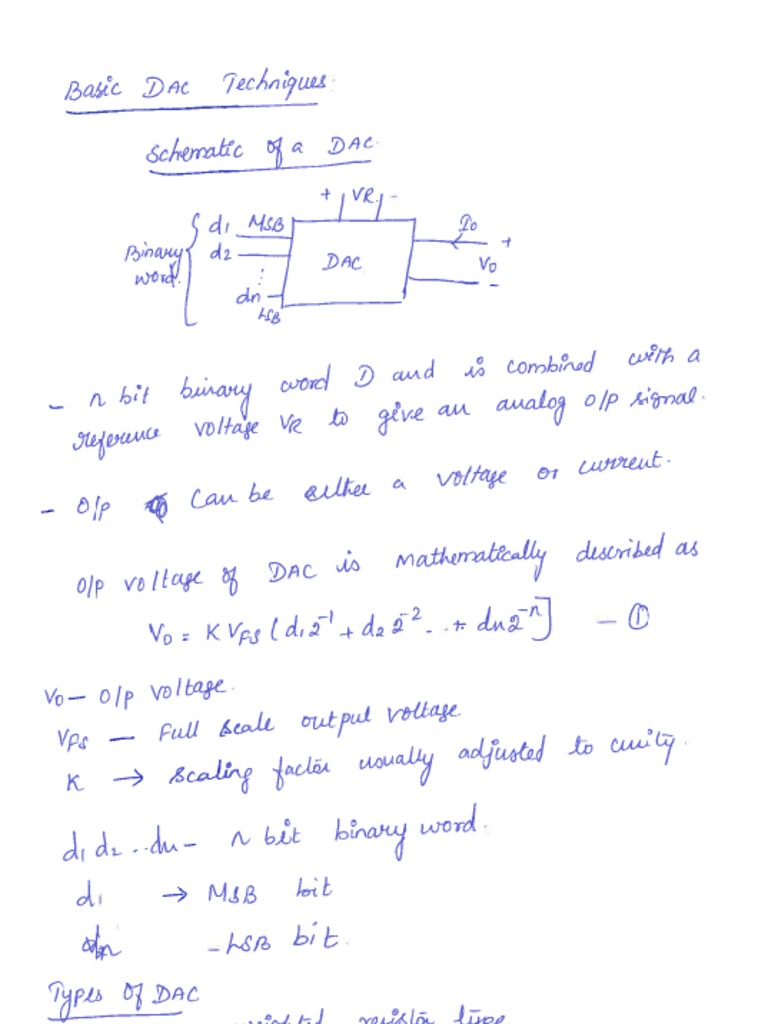 Basic DAC Techniques.
Schematic of a DAC.
+ VR -
d1 MSB
Io
+
Binary
word.
d2
DAC
Vo
:
dn
LSB
-
- n bit binary word D and is combined with a
reference voltage VR to give an analog o/p signal.
- O/p Can be either a voltage or current.
O/p voltage of DAC is mathematically described as
Vo = K VFS (d1 2^-1 + d2 2^-2 ... + dn 2^-n] - ①
Vo - O/p voltage.
VFS - Full scale output voltage.
K → Scaling factor usually adjusted to unity.
d1 d2 .. dn - n bit binary word.
d1 → MSB bit
dn - LSB bit.
Types Of DAC
weighted resistor type